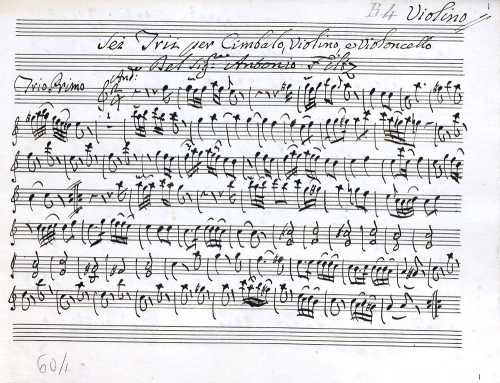 B.4 Violino
Sei Trii per Cimbalo, Violino, e Violoncello
Del Sigr. Antonio Filtz
Trio Primo And.
60/1